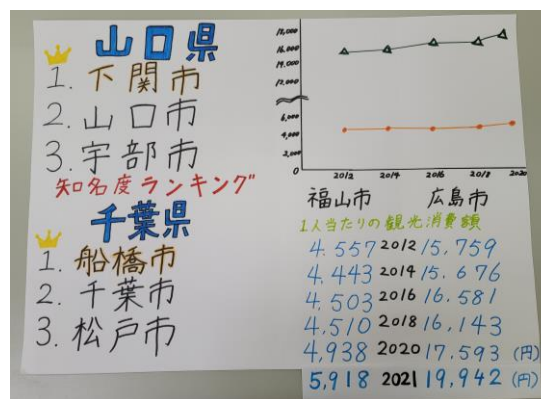 山口県
1. 下関市
2. 山口市
3. 宇部市
知名度ランキング
千葉県
1. 船橋市
2. 千葉市
3. 松戸市
16,000
14,000
12,000
6,000
4,000
2,000
0
2012 2014 2016 2018 2020
福山市 広島市
1人当たりの観光消費額
4.557 2012 15,759
4.443 2014 15.676
4.503 2016 16.581
4,510 2018 16,143
4,938 2020 17.593 (円)
5,918 2021 19,942 (円)